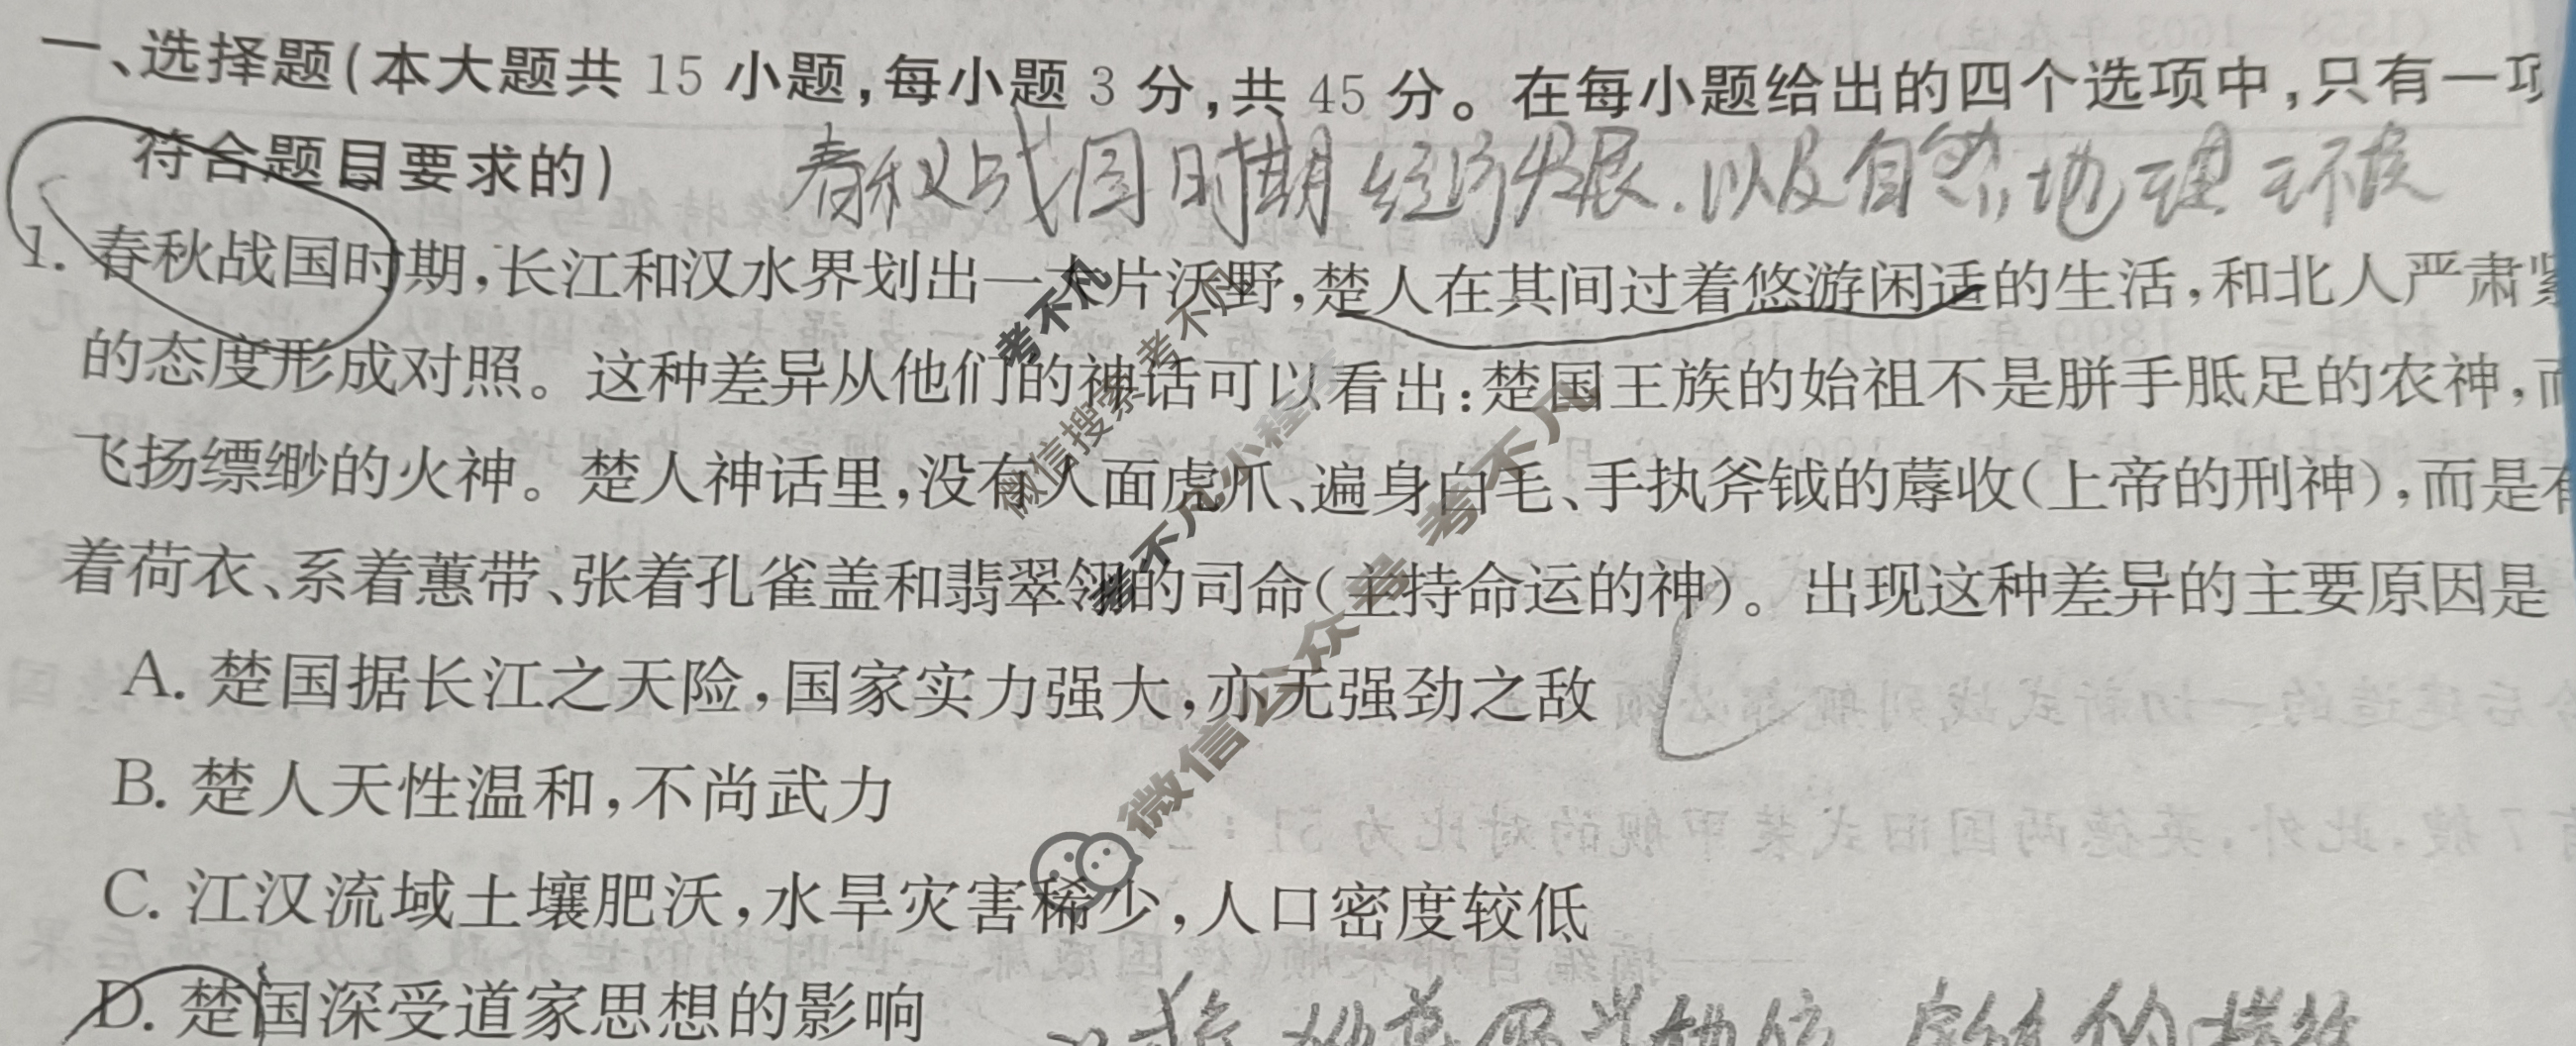 一、选择题(本大题共 15 小题,每小题 3 分,共 45 分。在每小题给出的四个选项中,只有一项
符合题目要求的)
春秋战国时期经济发展.以及自然地理环境
1. 春秋战国时期,长江和汉水界划出一大片沃野,楚人在其间过着悠游闲适的生活,和北人严肃紧
的态度形成对照。这种差异从他们的神话可以看出:楚国王族的始祖不是胼手胝足的农神,而
飞扬缥缈的火神。楚人神话里,没有人面虎爪、遍身白毛、手执斧钺的蓐收(上帝的刑神),而是有
着荷衣、系着蕙带、张着孔雀盖和翡翠翎的司命(主持命运的神)。出现这种差异的主要原因是
A. 楚国据长江之天险,国家实力强大,亦无强劲之敌
B. 楚人天性温和,不尚武力
C. 江汉流域土壤肥沃,水旱灾害稀少,人口密度较低
D. 楚国深受道家思想的影响
考不凡
考不凡
微信搜索
考不凡小程序
微信公众号 考不凡